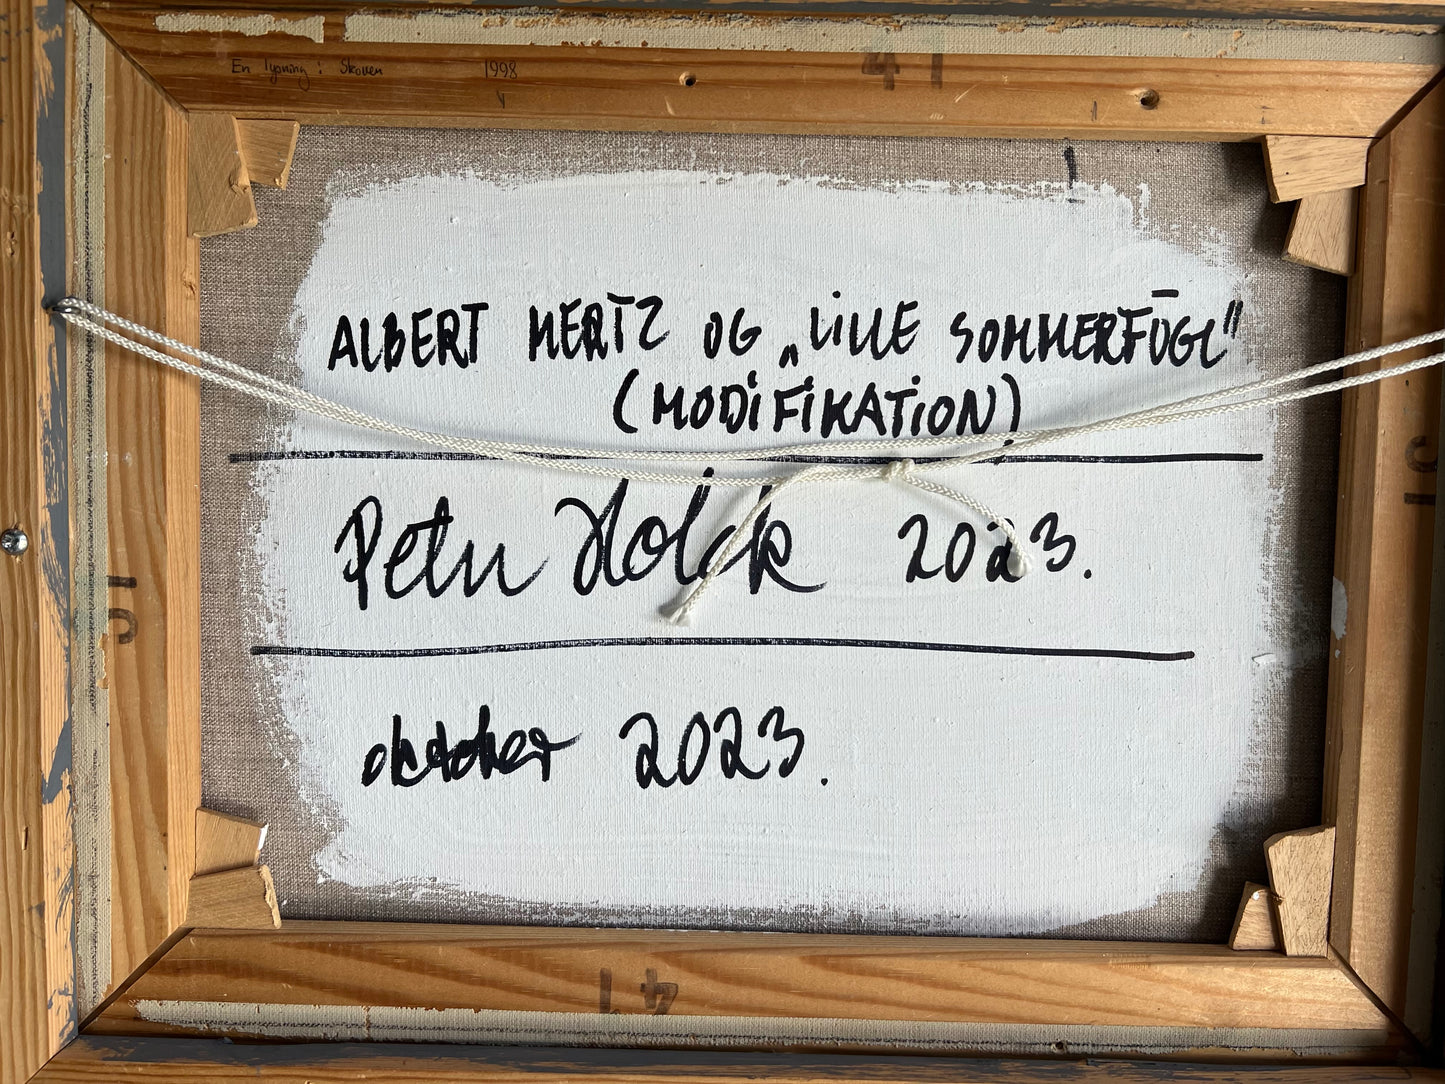 En lysning: Skoven 1998
41
ALBERT MERTZ OG „LILLE SOMMERFUGL"
(MODIFIKATION)
Peter Holck 2023.
oktober 2023.
51
51
41